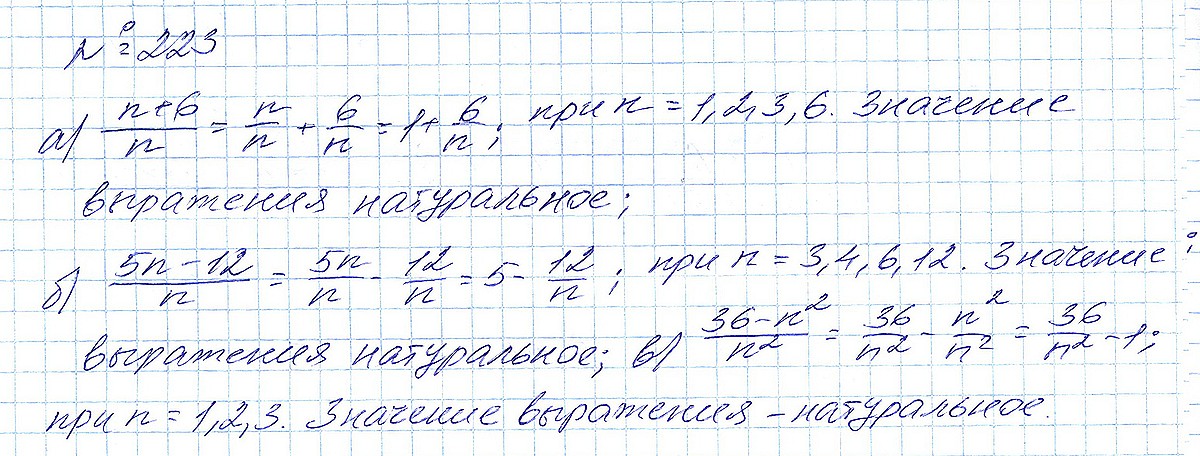 № 223
а) (n+6)/n = n/n + 6/n = 1 + 6/n; при n = 1,2,3,6. Значение
выражения натуральное;
б) (5n-12)/n = 5n/n - 12/n = 5 - 12/n; при n = 3,4,6,12. Значение
выражения натуральное; в) (36-n²)/n² = 36/n² - n²/n² = 36/n² - 1;
при n = 1,2,3. Значение выражения - натуральное.